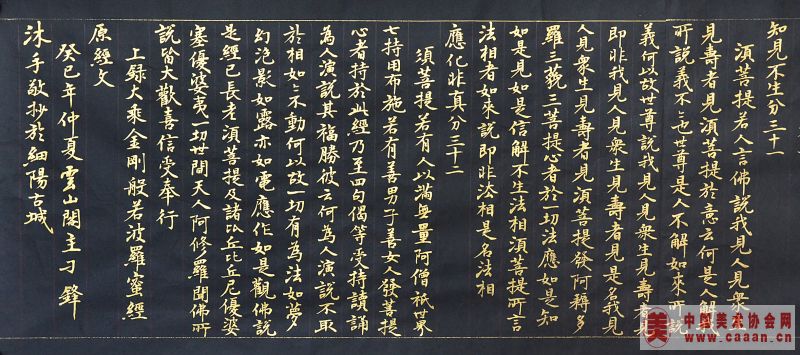 知見不生分三十一
須菩提若人言佛說我見人見衆生
見壽者見須菩提於意云何是人解我
所說義不〻也世尊是人不解如來所說
義何以故世尊說我見人見衆生見壽者見
即非我見人見衆生見壽者見是名我見
人見衆生見壽者見須菩提發阿耨多
羅三藐三菩提心者於一切法應如是知
如是見如是信解不生法相須菩提所言
法相者如來說即非法相是名法相
應化非真分三十二
須菩提若有人以滿無量阿僧祇世界
七持用布施若有善男子善女人發菩提
心者持於此經乃至四句偈等受持讀誦
為人演說其福勝彼云何為人演說不取
於相如〻不動何以故一切有為法如夢
幻泡影如露亦如電應作如是觀佛說
是經已長老須菩提及諸比丘比丘尼優婆
塞優婆夷一切世間天人阿修羅聞佛所
說皆大歡喜信受奉行
上録大乘金剛般若波羅蜜經
原經文
癸巳年仲夏雲山閣主刁鋒
沐手敬抄於細陽古城
美
中国美术协会网
www.caaan.cn